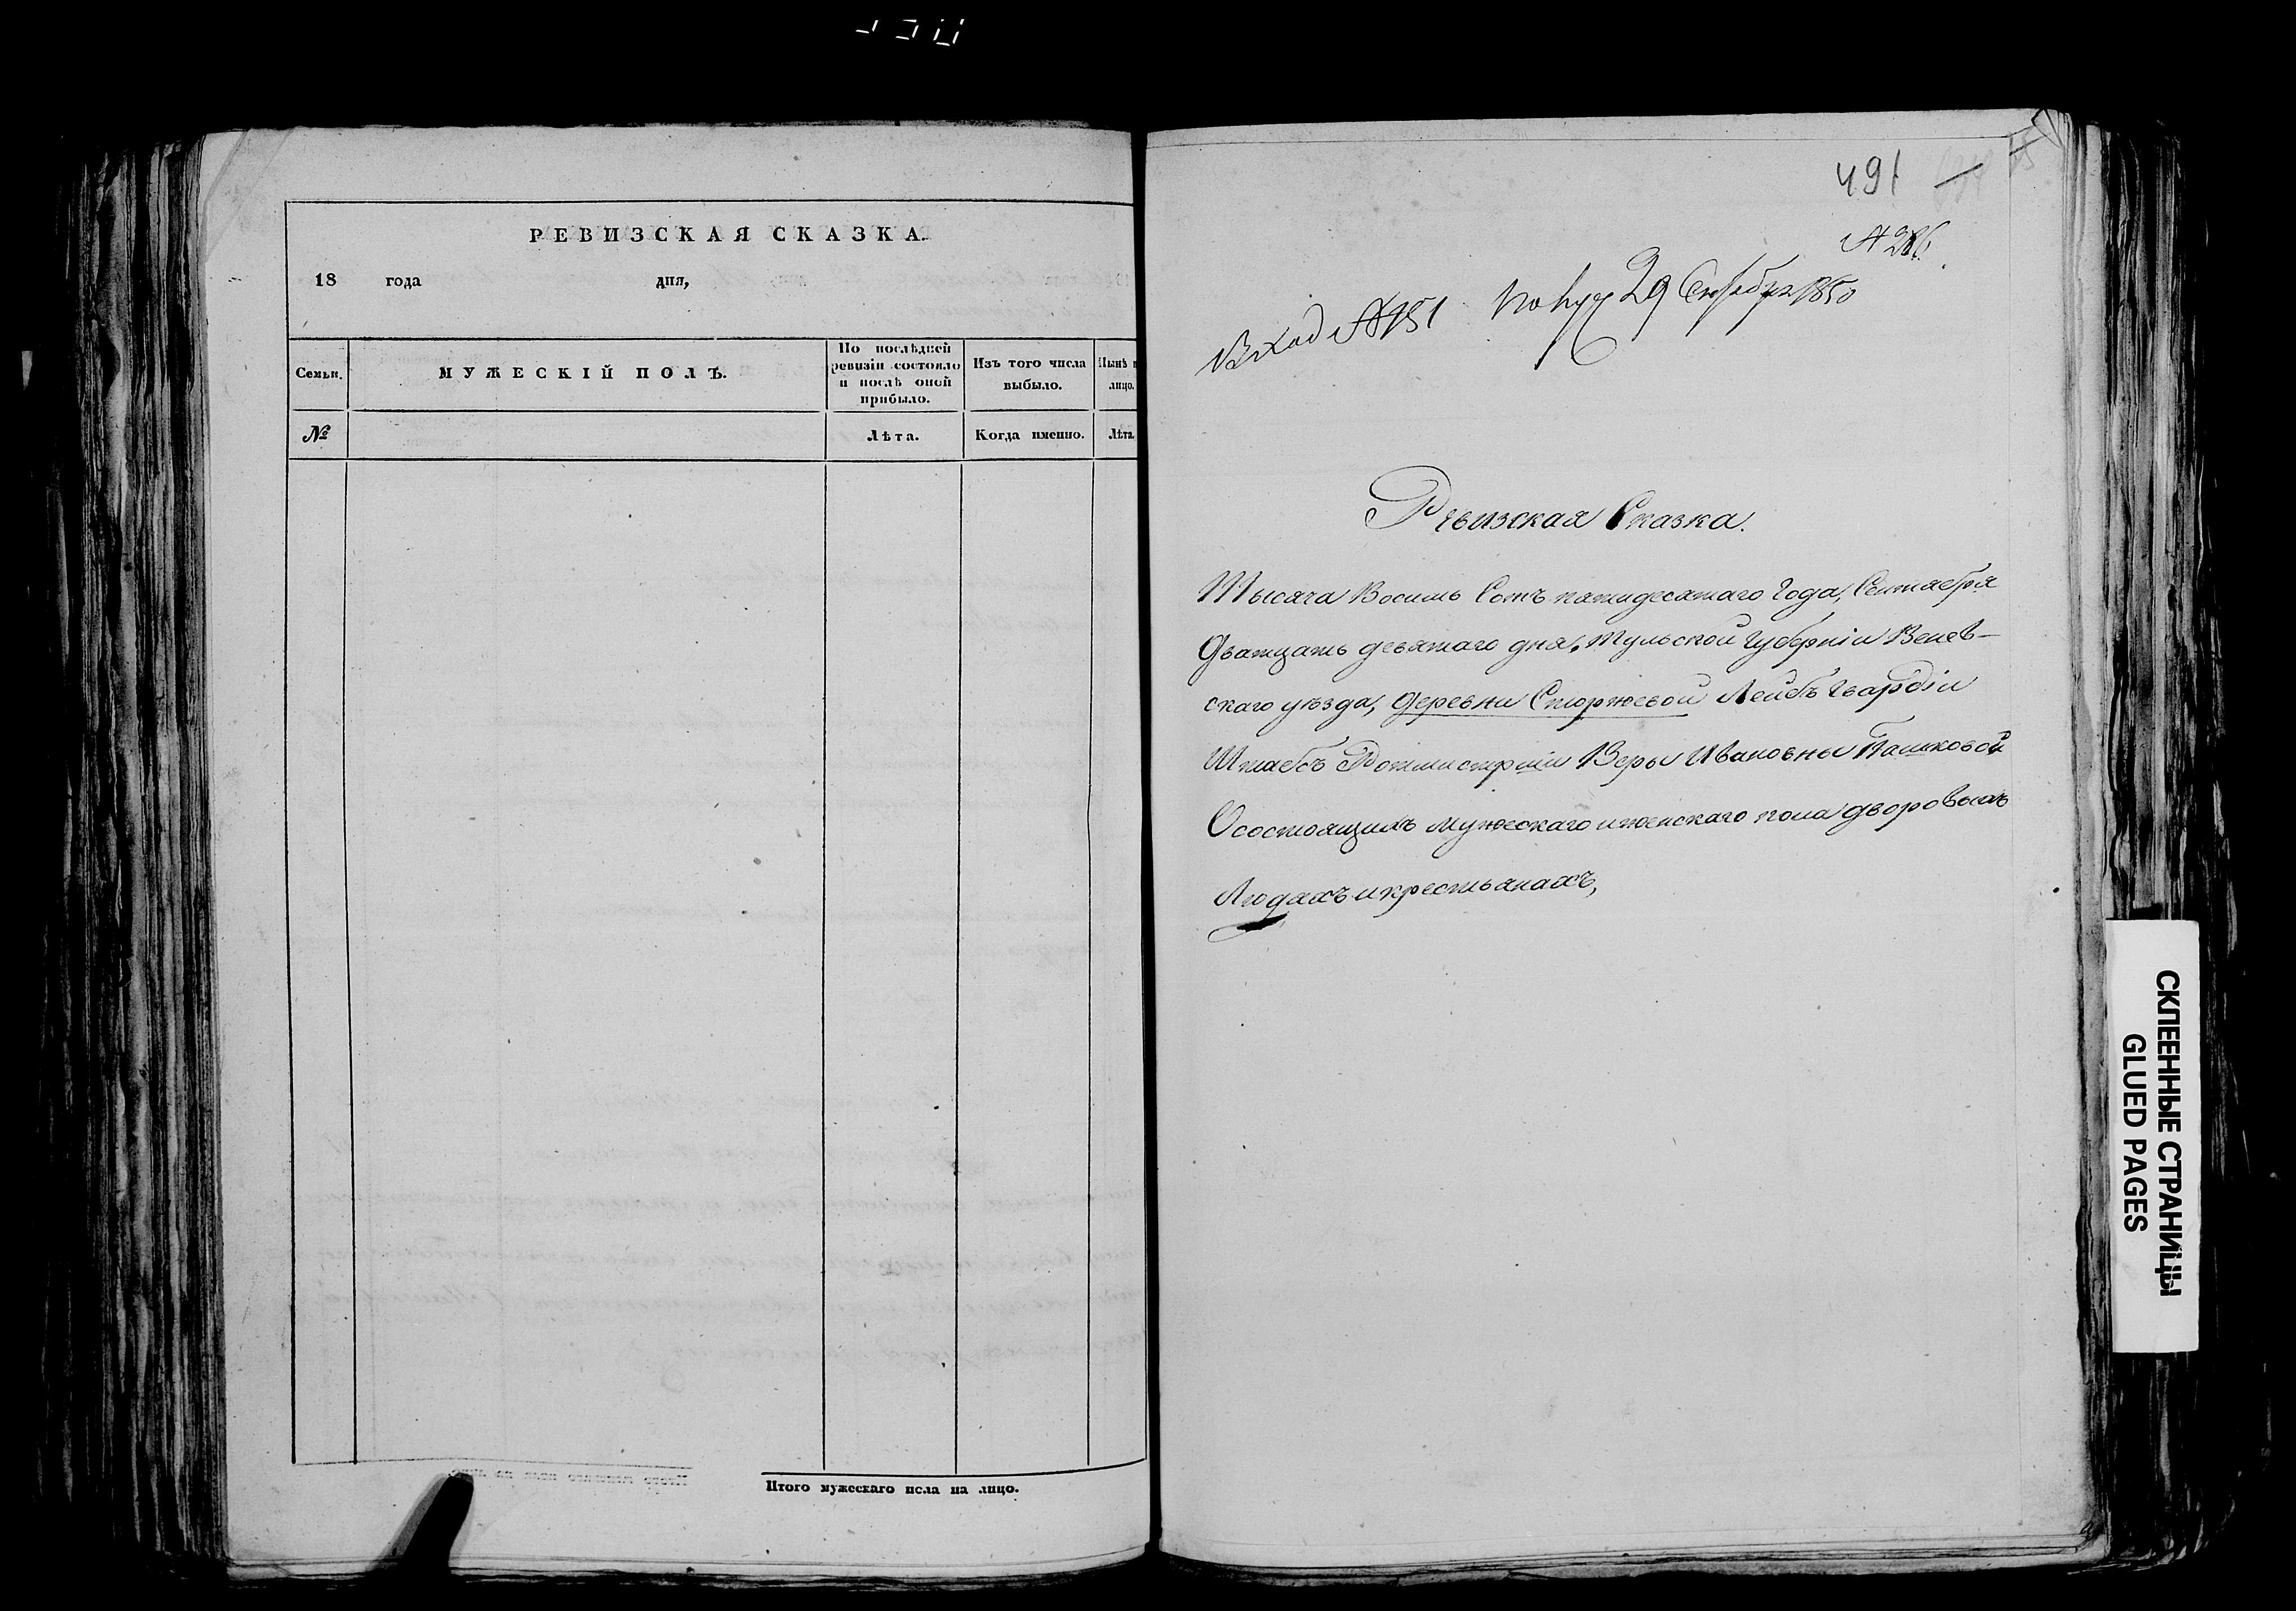 РЕВИЗСКАЯ СКАЗКА.
18 года дня,
Семьи.
МУЖЕСКІЙ ПОЛЪ.
По послѣдней
ревизіи состояло
и послѣ оной
прибыло.
Изъ того числа
выбыло.
Нынѣ н
лицо.
№
Лѣта.
Когда именно.
Лѣта.
Итого мужескаго пола на лицо.
491
№ 286.
Вход № 151 Получ 29 Октября 1850
Ревизская Сказка.
Тысяча Восимь Сотъ пятидесятаго Года, Сентебря
Дватцать девятаго дня, Тульской Губерніи Венев-
скаго уѣзда, деревни Сторжевой Лейбъ Гвардіи
Штабсъ Ротмистрши Веры Ивановны Пашковой
О состоящихъ мужескаго и женскаго пола дворовыхъ
Людяхъ и крестьянахъ,
СКЛЕЕННЫЕ СТРАНИЦЫ
GLUED PAGES